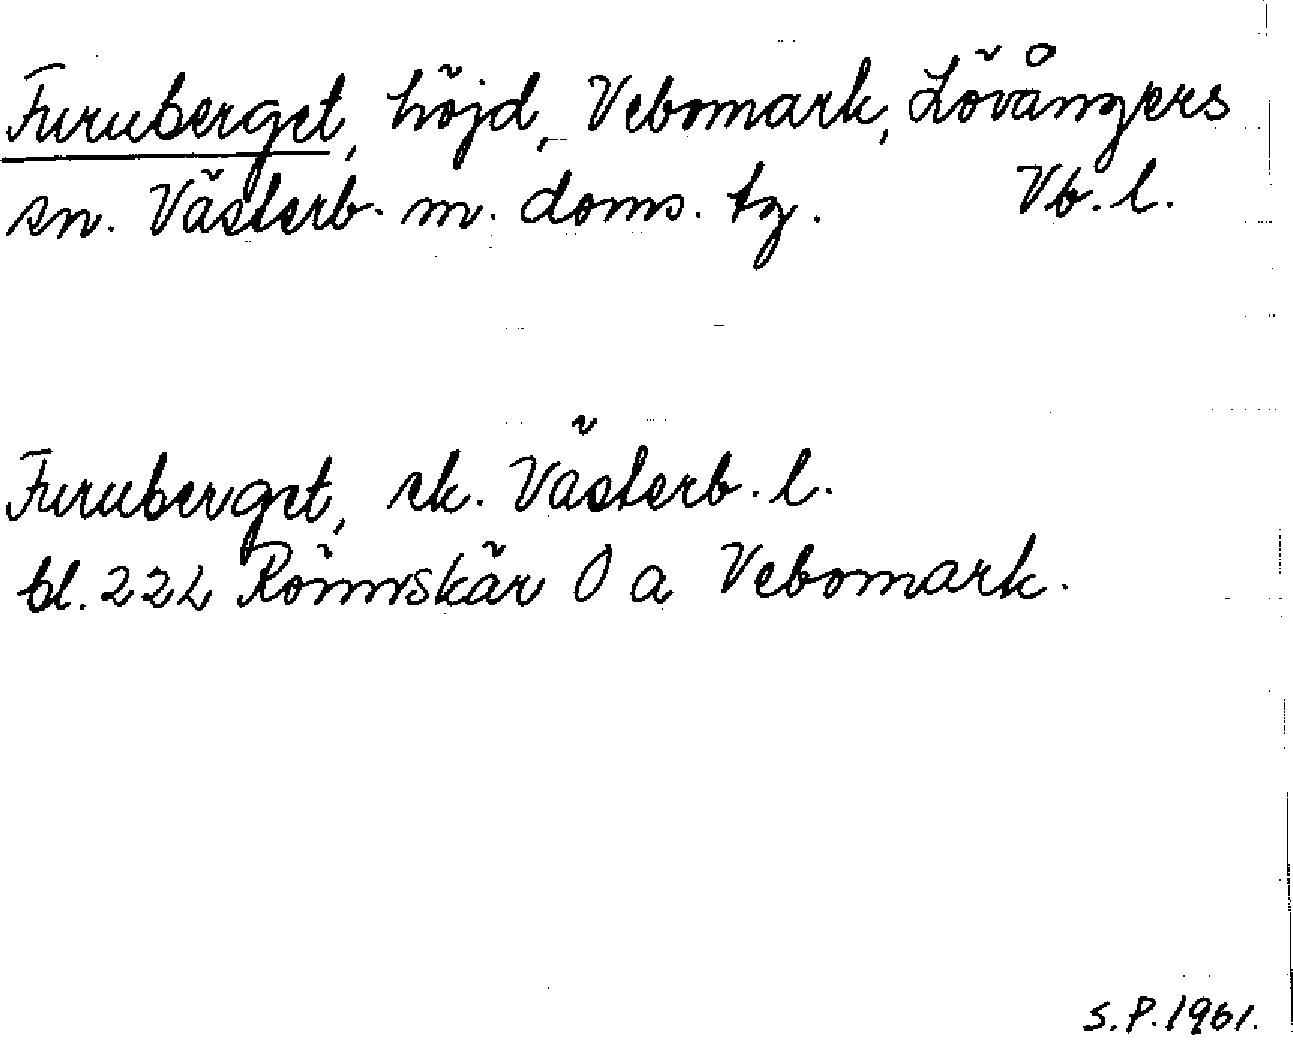 Furuberget, höjd, Vebomark, Lövångers
sn. Västerb. m. doms. tg. Vb. l.
Furuberget, ek. Västerb. l.
bl. 222 Rönnskär O a Vebomark.
S.P. 1961.